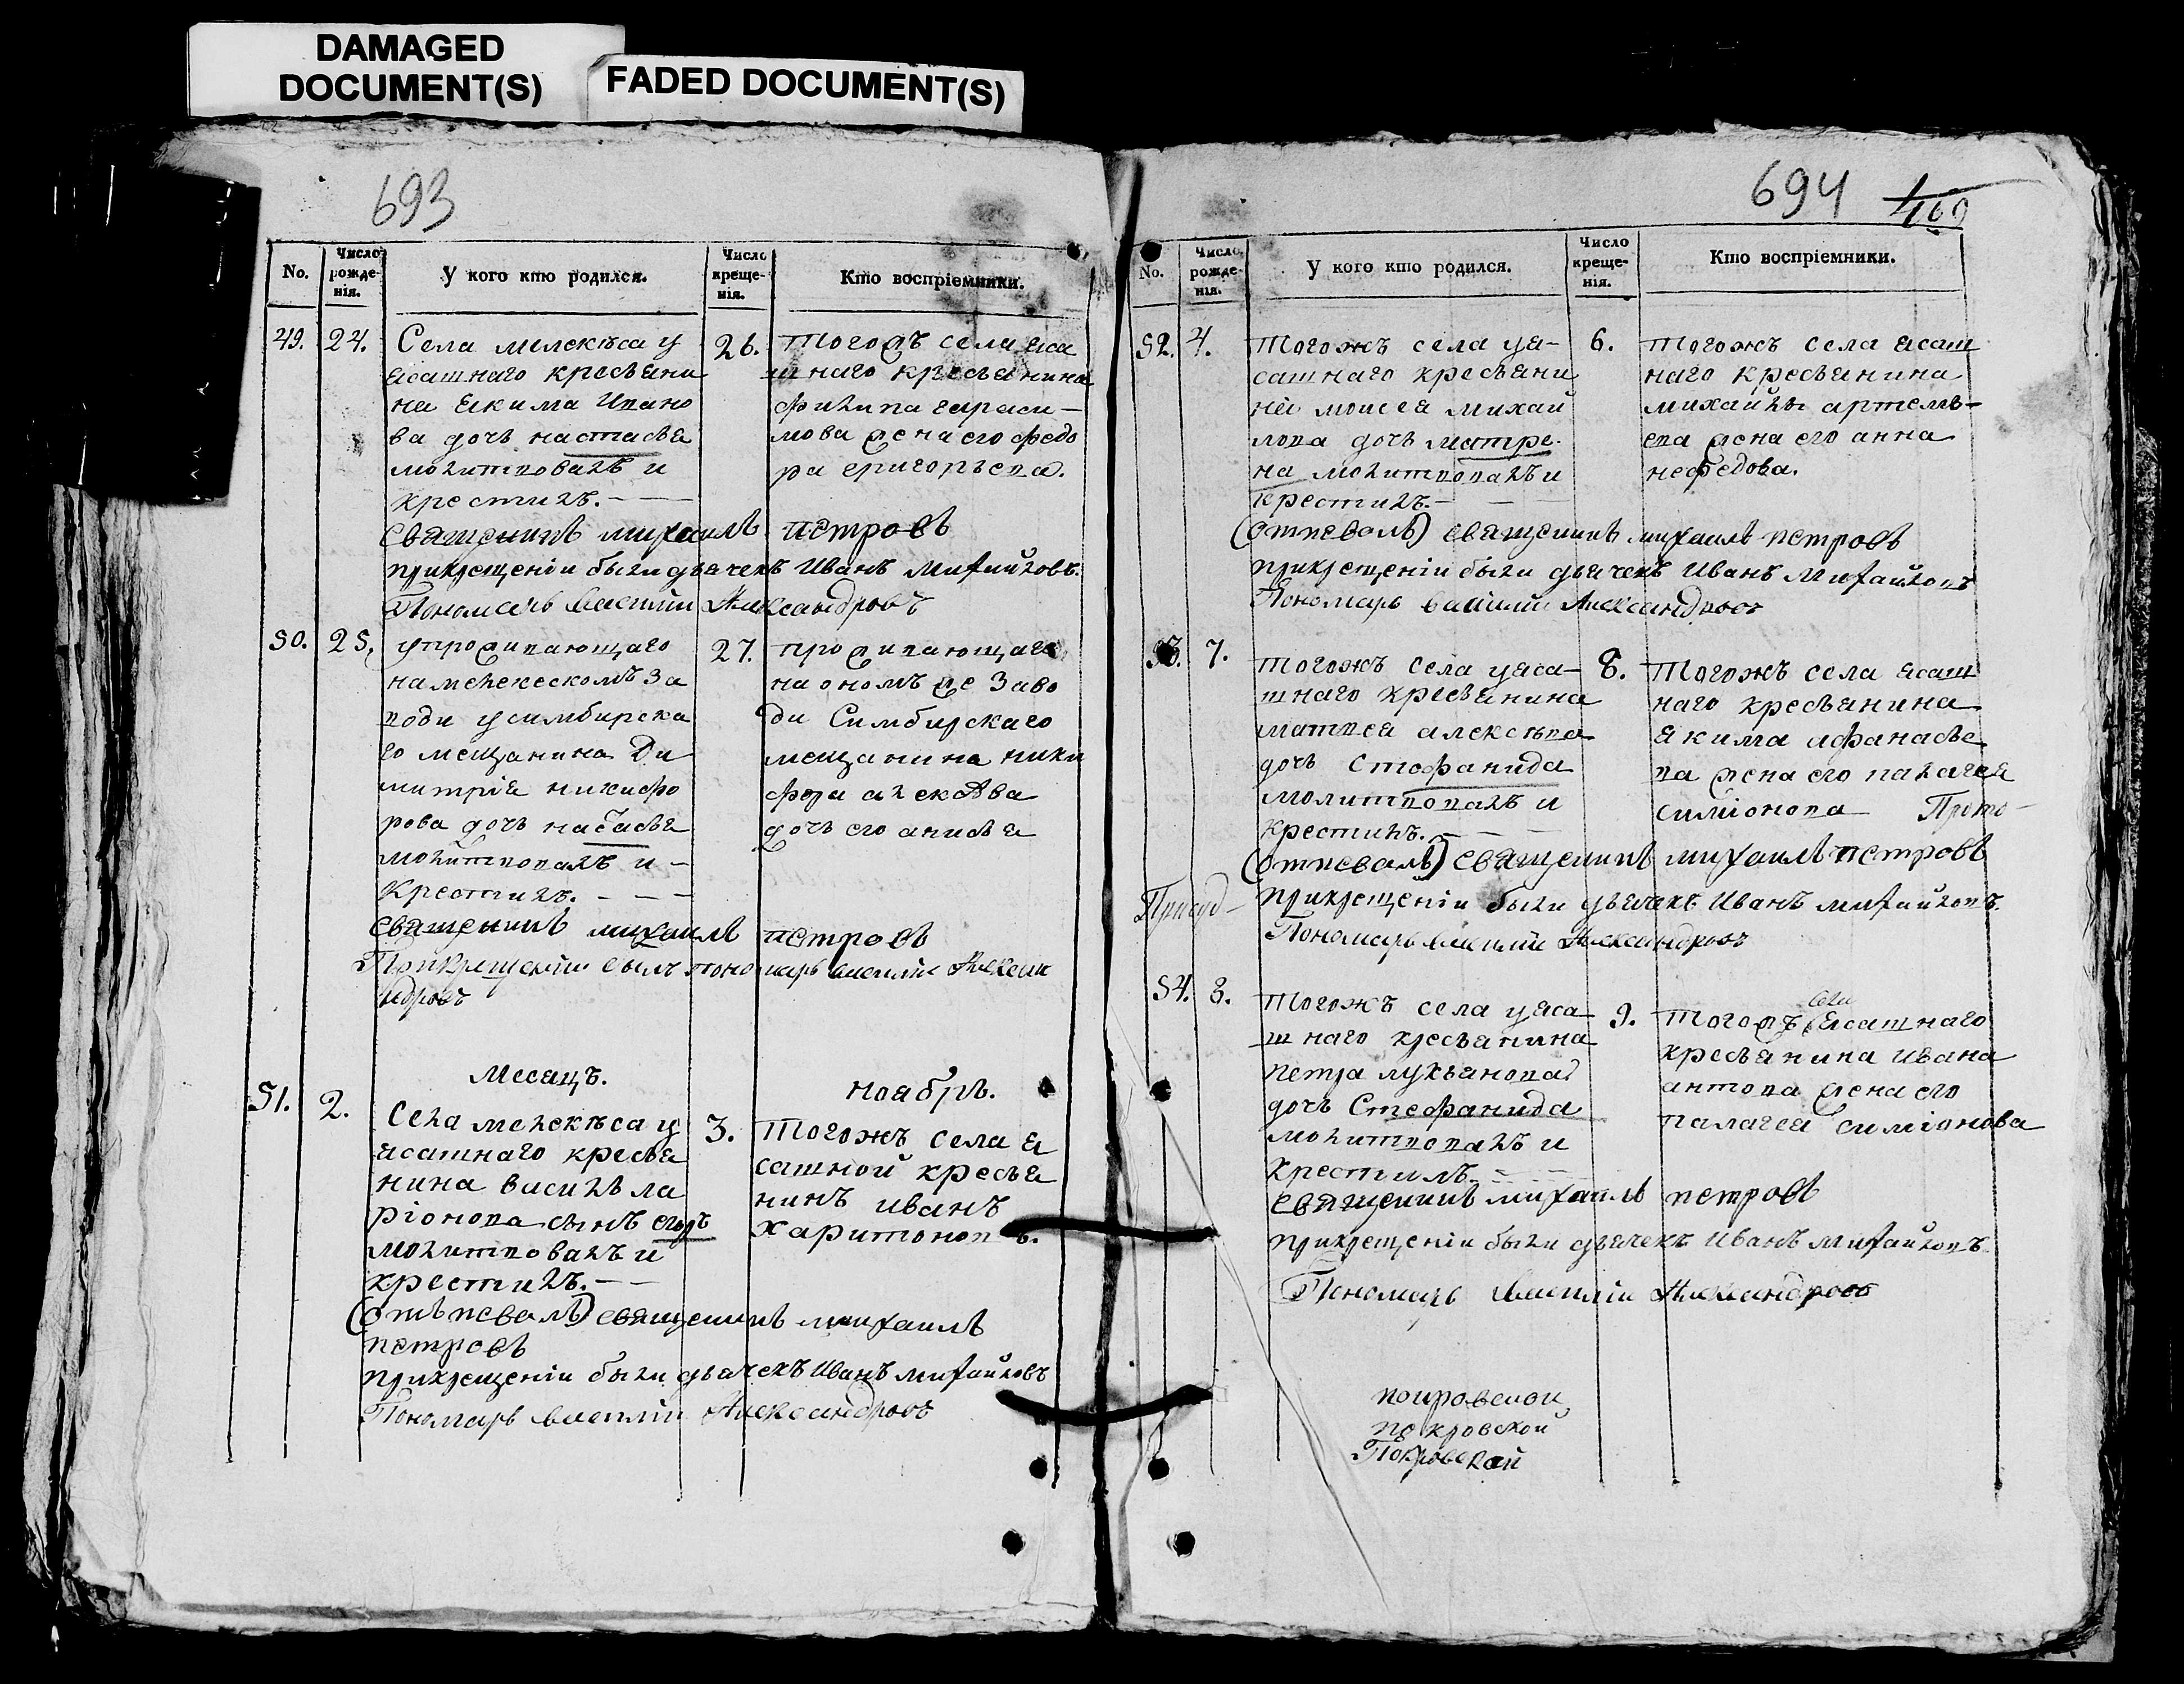 DAMAGED
DOCUMENT(S)
FADED DOCUMENT(S)
693
No.
Число рожденія.
У кого кто родился.
Число крещенія.
Кто воспріемники.
49.
24.
Села мелекѣса у
ясашнаго кресьяни
на якима Ивано
ва дочь настасья
молитвовалъ и
крестилъ.
26.
тогожъ села яса
шнаго кресьянина
филипа гараси-
мова жена его федо
ра григорьева.
священникъ михаилъ петровъ
прикрещеніи были дьячекъ Иванъ Михайловъ.
Пономарь василии Александровъ
50.
25.
упроживающаго
намелекескомъ за
води усимбирска
го мещанина Ди
митрія никифо
рова дочь настасья
молитвовалъ и -
Крестилъ.
27.
проживающаго
на ономъ же Заво
ди Симбирскаго
мещанина ники
фора
дочь его анисья
священникъ михаилъ петровъ
Прикрещеніи былъ пономарь василии Алексан
дровъ
Месяцъ.
ноабрь.
51.
2.
Села мелекѣса у
ясашнаго кресья
нина василья ла
ріонова сынъ егоръ
молитвовалъ и
крестилъ.
3.
Тогожъ села я
сашной кресья
нинъ иванъ
харитоновъ.
(отъпевалъ) священникъ михаилъ
петровъ
прикрещеніи были дьячекъ Иванъ михайловъ
Пономарь василии Александровъ
694
No.
Число рожденія.
У кого кто родился.
Число крещенія.
Кто воспріемники.
52.
4.
тогожъ села уя-
сашнаго кресьяни
на моисея михай
лова дочь матре-
на молитвовалъ и
крестилъ.
6.
тогожъ села ясаш
наго кресьянина
михайлы артемь-
ева жена его анна
нефедова.
(отпевалъ) священникъ михаилъ петровъ
прикрещеніи были дьячекъ Иванъ Михайловъ
Пономарь василии Александровъ
53.
7.
тогожъ села уяса-
шнаго кресьянина
матвея алексѣва
дочь Стефанида
молитвовалъ и
крестилъ.
8.
тогожъ села ясаш
наго кресьянина
якима афанасье
ва жена его палагея
симіонова
(отпевалъ) священникъ михаилъ петровъ
прикрещеніи были дьячекъ Иванъ михайловъ.
Пономарь василии Александровъ
54.
8.
тогожъ села уяса-
шнаго кресьянина
петра лукьянова
дочь Стефанида
молитвовалъ и
крестилъ.
9.
тогожъ села ясашнаго
кресьянина ивана
антова жена его
палагея симіонова
священникъ михаилъ петровъ
прикрещеніи были дьячекъ Иванъ михайловъ
Пономарь василии Александровъ
покровской
Покровскай